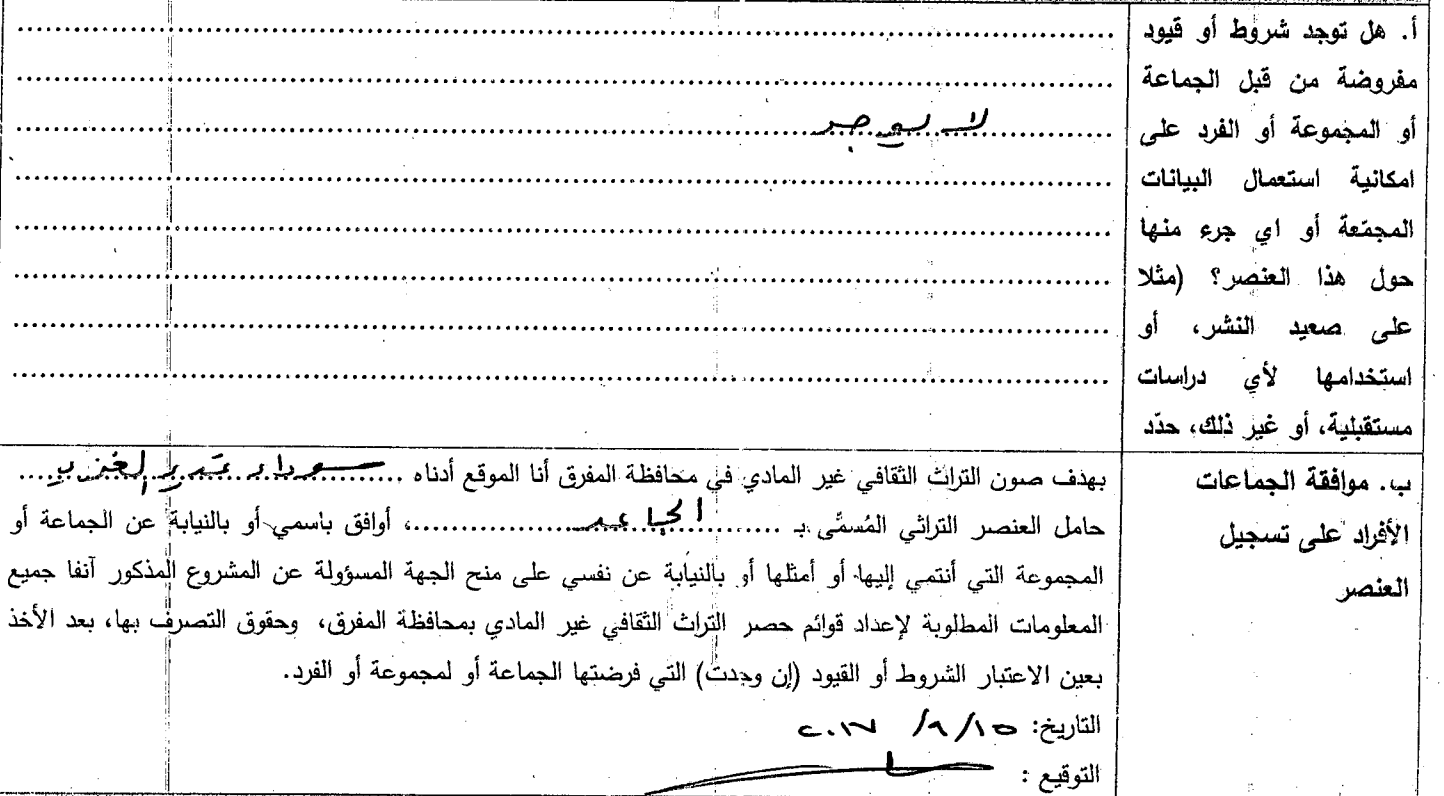 أ. هل توجد شروط أو قيود
مفروضة من قبل الجماعة
أو المجموعة أو الفرد على
امكانية استعمال البيانات
المجمّعة أو اي جرء منها
حول هذا العنصر؟ (مثلا
على صعيد النشر، أو
استخدامها لأي دراسات
مستقبلية، أو غير ذلك، حدّد
لا يوجد
ب. موافقة الجماعات
الأفراد على تسجيل
العنصر
بهدف صون التراث الثقافي غير المادي في محافظة المفرق أنا الموقع أدناه
حامل العنصر التراثي المُسمَّى بـ ........ الجاعد ........، أوافق باسمي أو بالنيابة عن الجماعة أو
المجموعة التي أنتمي إليها أو أمثلها أو بالنيابة عن نفسي على منح الجهة المسؤولة عن المشروع المذكور آنفا جميع
المعلومات المطلوبة لإعداد قوائم حصر التراث الثقافي غير المادي بمحافظة المفرق، وحقوق التصرف بها، بعد الأخذ
بعين الاعتبار الشروط أو القيود (إن وجدت) التي فرضتها الجماعة أو لمجموعة أو الفرد.
التاريخ: ١٥/ ٩/ ٢٠١٧
التوقيع :